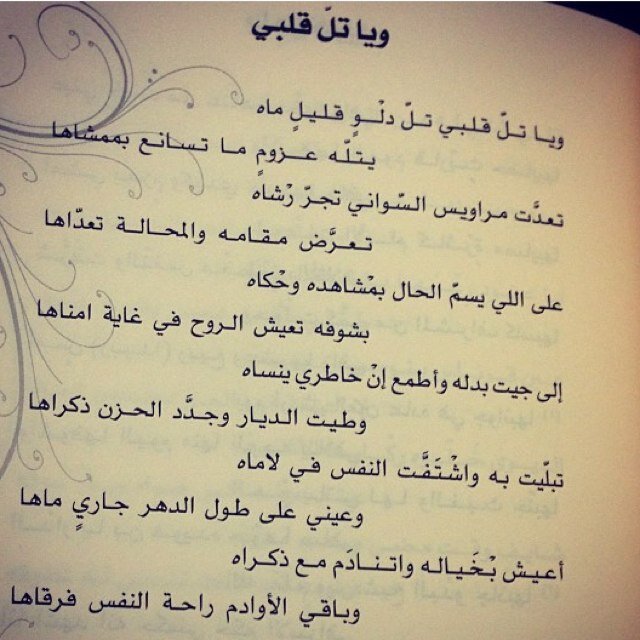 ويا تلّ قلبي
ويـا تـلّ قلبـي تـلّ دلْـوٍ قليـلٍ ماه
يـتلّـه عـزومٍ مـا تسـانع بممشاها
تعدَّت مراويس السّواني تجرّ رْشاه
تـعـرَّض مـقـامـه والمحالـة تعدّاها
على اللي يسمّ الحال بمْشاهده وحْكاه
بشوفه تعيش الروح في غاية امناها
إلى جيت بدله وأطمع إنْ خاطري ينساه
وطيت الـديـار وجـدَّد الحـزن ذكراها
تبلّيت به واشْتَفَّت النفس في لاماه
وعيني على طول الدهر جـاريٍ ماها
أعيش بْخَيـالـه واتـنـادَم مـع ذكـراه
وبـاقي الأوادم راحـة النفس فرقاها